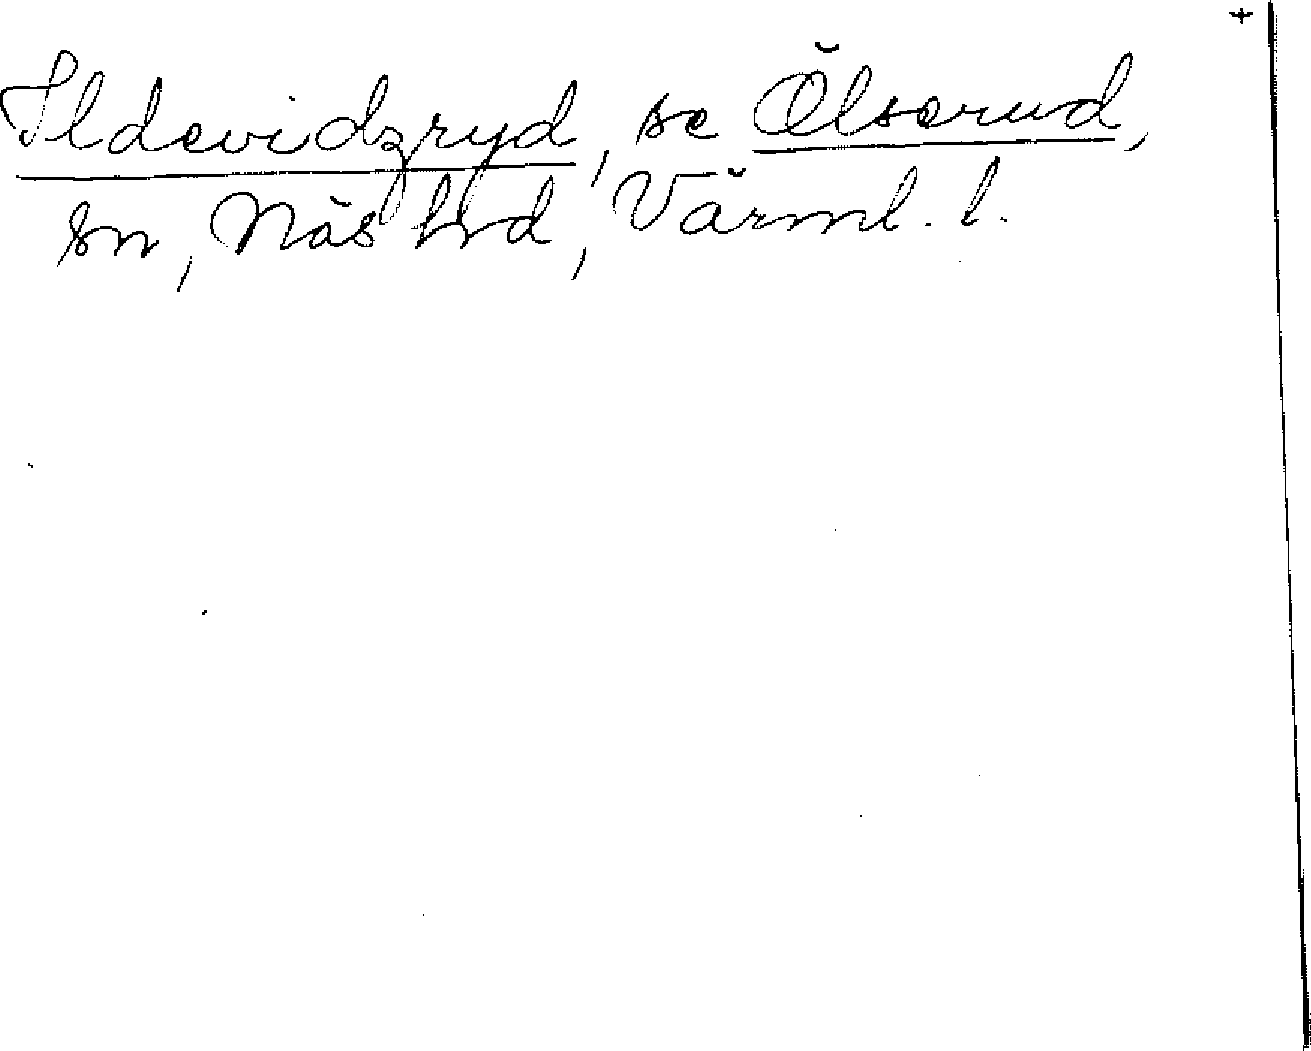 Ildevidzryd, se Ölserud,
sn, Näs hd, Värml. l.